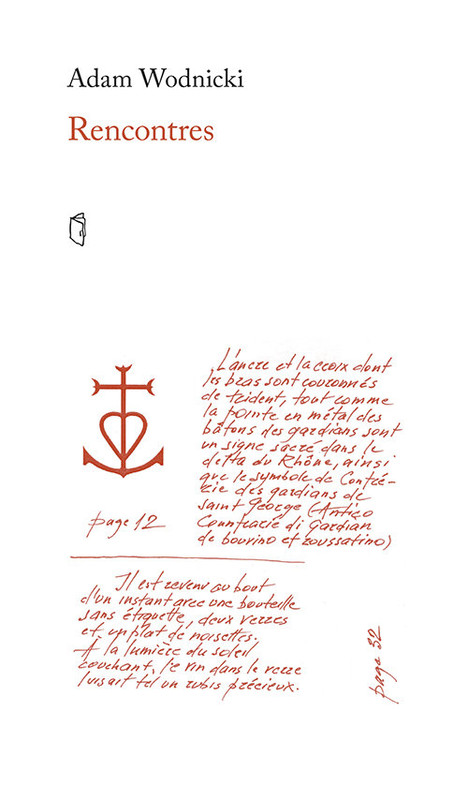 Adam Wodnicki
Rencontres
L'ancre et la croix dont
les bras sont couronnés
de trident, tout comme
la pointe en métal des
bâtons des gardians sont
un signe sacré dans le
delta du Rhône, ainsi
que le symbole de Confré-
rie des gardians de
saint George (Antico
Counfrarié di Gardian
de bouvino et roussatino)
page 12
Il est revenu au bout
d'un instant avec une bouteille
sans étiquette, deux verres
et un plat de noisettes.
A la lumière du soleil
couchant, le vin dans le verre
luisait tel un rubis précieux.
page 32